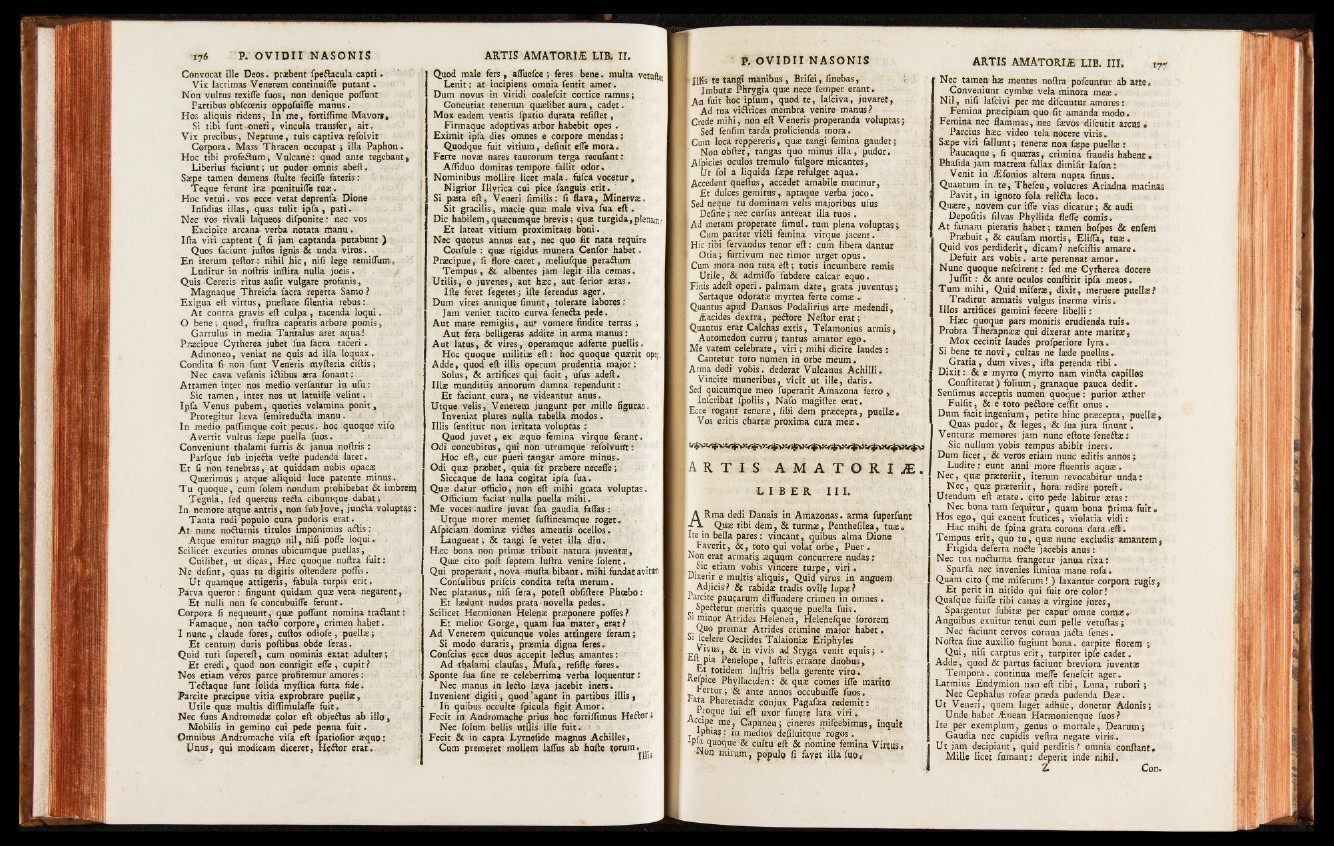 176 P. OVIDII NASONIS
Convocat ille Deos. præbent spectacula capti.
Vix lacrimas Venerem continuisse putant.
Non vultus texisse suos, non denique possunt
Partibus obscœnis opposuisse manus.
Hos aliquis ridens, In me, fortissime Mavors,
Si tibi sunt oneri, vincula transfer, ait.
Vix precibus, Neptune, tuis captiva resolvit
Corpora. Mars Thracen occupat; illa Paphon.
Hoc tibi profectum, Vulcane: quod ante tegebant,
Liberius faciunt; ut pudor omnis abest.
Sæpe tamen demens stulte fecisse fateris:
Teque ferunt iræ pœnituisse tuæ.
Hoc vetui. vos ecce vetat deprensa Dione
Insidias illas, quas tulit ipsa, pati.
Nec vos rivali laqueos disponite: nec vos
Excipite arcana verba notata manu.
Ista viri captent (si jam captanda putabunt)
Quos faciunt justos ignis & unda viros.
En iterum testor: nihil hic, nisi lege remissum,
Luditur in nostris instita nulla jocis.
Quis Cereris ritus ausit vulgare profanis,
Magnaque Threicia sacra reperta Samo?
Exigua est virtus, præstare silentia rebus:
At contra gravis est culpa, tacenda loqui.
O bene; quod, frustra captatis arbore pomis,
Garrulus in media Tantalus aret aqua!
Præcipue Cytherea jubet sua sacra taceri.
Admoneo, veniat ne quis ad illa loquax.
Condita si non sunt Veneris mysteria cistis;
Nec cava vesanis ictibus æra sonant:
Attamen inter nos medio versantur in usu:
Sic tamen, inter nos ut latuisse velint.
Ipsa Venus pubem, quoties velamina ponit,
Protegitur læva semireducta manu.
In medio passimque coit pecus. hoc quoque viso
Avertit vultus sæpe puella suos.
Conveniunt thalami furtis & janua nostris:
Parsque sub injecta veste pudenda latet.
Et si non tenebras, at quiddam nubis opacæ
Quærimus; atque aliquid luce patente minus.
Tu quoque, cum solem nondum prohibebat & imbrem
Tegula, sed quercus tecta cibumque dabat;
In nemore atque antris, non sub Jove, juncta voluptas:
Tanta rudi populo cura pudoris erat.
At nunc nocturnis titulos imponimus actis:
Atque emitur magno nil, nisi posse loqui.
Scilicet excuties omnes ubicumque puellas,
Cuilibet, ut dicas, Hæc quoque nostra fuit:
Ne desint, quas tu digitis ostendere possis.
Ut quamque attigeris, fabula turpis erit.
Parva queror: fingunt quidam quæ vera negarent,
Et nulli non se concubuisse ferunt.
Corpora si nequeunt, quæ possunt nomina tractant:
Famaque, non tacto corpore, crimen habet.
I nunc, claude fores, custos odiose, puellæ;
Et centum duris postibus obde seras.
Quid tuti superest, cum nominis extat adulter;
Et credi, quod non contigit esse, cupit?
Nos etiam veros parce profitemur amores:
Tectaque sunt solida mystica furta fide.
Parcite præcipue vitia exprobrare puellæ,
Utile quæ multis dissimulasse fuit.
Nec suus Andromedæ color est objectus ab illo,
Mobilis in gemino cui pede penna fuit.
Omnibus Andromache visa est spatiosior æquo:
Unus, qui modicam diceret, Hector erat.
ARTIS AMATORIÆ LIB. II.
Quod male fers, assuesce; feres bene. multa vetustas
Lenit: at incipiens omnia sentit amor.
Dum novus in viridi coalescit cortice ramus;
Concutiat tenerum quælibet aura, cadet.
Mox eadem ventis spatio durata resistet,
Firmaque adoptivas arbor habebit opes.
Eximit ipsa dies omnes e corpore mendas:
Quodque fuit vitium, desinit esse mora.
Ferre novæ nares taurorum terga recusant:
Assiduo domitas tempore fallit odor.
Nominibus mollire licet mala. fusca vocetur,
Nigrior Illyrica cui pice sanguis erit.
Si pæta est, Veneri similis: si flava, Minervæ.
Sit gracilis, macie quæ male viva sua est.
Dic habilem, quæcumque brevis; quæ turgida, plenam:
Et lateat vitium proximitate boni.
Nec quotus annus eat, nec quo sit nata require
Consule: quæ rigidus munera Censor habet.
Præcipue, si flore caret, meliusque peractum
Tempus, & albentes jam legit illa comas.
Utilis, o juvenes, aut hæc, aut serior ætas.
Iste feret segetes; iste serendus ager.
Dum vires annique sinunt, tolerate labores:
Jam veniet tacito curva senecta pede.
Aut mare remigiis, aut vomere findite terras;
Aut fera belligeras addite in arma manus:
Aut latus, & vires, operamque adferte puellis.
Hoc quoque militiæ est: hoc quoque quærit opes.
Adde, quod est illis operum prudentia major:
Solus, & artifices qui facit, usus adest.
Illæ munditiis annorum damna rependunt:
Et faciunt cura, ne videantur anus.
Utque velis, Venerem jungunt per mille figuras.
Inveniat plures nulla tabella modos.
Illis sentitur non irritata voluptas:
Quod juvet, ex æquo femina virque ferant.
Odi concubitus, qui non utrumque resolvunt:
Hoc est, cur pueri tangar amore minus.
Odi quæ præbet, quia sit præbere necesse;
Siccaque de lana cogitat ipsa sua.
Quæ datur officio, non est mihi grata voluptas.
Officium faciat nulla puella mihi.
Me voces audire juvat sua gaudia fassas:
Utque morer memet sustineamque roget.
Aspiciam dominæ victos amentis ocellos.
Langueat; & tangi se vetet illa diu.
Hæc bona non primæ tribuit natura juventæ,
Quæ cito post septem lustra venire solent.
Qui properant, nova musta bibant. mihi fundat avitum
Consulibus priscis condita testa merum.
Nec platanus, nisi sera, potest obsistere Phœbo:
Et lædunt nudos prata novella pedes.
Scilicet Hermionen Helenæ præponere posses?
Et melior Gorge, quam sua mater, erat?
Ad Venerem quicunque voles attingere seram;
Si modo duraris, præmia digna feres.
Conscius ecce duos accepit lectus amantes:
Ad thalami clausas, Musa, resiste fores.
Sponte sua sine te celeberrima verba loquentur:
Nec manus in lecto læva jacebit iners.
Invenient digiti, quod agant in partibus illis,
In quibus occulte spicula figit Amor.
Fecit in Andromache prius hoc fortissimus Hector;
Nec solum bellis utilis ille fuit.
Fecit & in capta Lyrneside magnus Achilles,
Cum premeret mollem lassus ab hoste torum.
Illis
P. OVIDII NASONIS
Illis te tangi manibus, Brisei, sinebas,
Imbutæ Phrygia quæ nece semper erant.
An fuit hoc ipsum, quod te, lasciva, juvaret,
Ad tua victrices membra venire manus?
Crede mihi, non est Veneris properanda voluptas;
Sed sensim tarda prolicienda mora.
Cum loca reppereris, quæ tangi femina gaudet;
Non obstet, tangas quo minus illa, pudor.
Aspicies oculos tremulo fulgore micantes,
Ut sol a liquida sæpe refulget aqua.
Accedent questus, accedet amabile murmur,
Et dulces gemitus, aptaque verba joco.
Sed neque tu dominam velis majoribus usus
Desine; nec cursus anteeat illa tuos.
Ad metam properate simul. tum plena voluptas;
Cum pariter victi femina virque jacent.
Hic tibi servandus tenor est: cum libera dantur
Otia; furtivum nec timor urget opus.
Cum mora non tuta est; totis incumbere remis
Utile, & admisso subdere calcar equo.
Finis adest operi. palmam date, grata juventus;
Sertaque odoratæ myrtea ferte comæ.
Quantus apud Danaos Podalirius arte medendi,
Æacides dextra, pectore Nestor erat;
Quantus erat Calchas extis, Telamonius armis,
Automedon curru; tantus amator ego.
Me vatem celebrate, viri; mihi dicite laudes:
Cantetur toto nomen in orbe meum.
Arma dedi vobis. dederat Vulcanus Achilli.
Vincite muneribus, vicit ut ille, datis.
Sed quicumque meo superarit Amazona ferro,
Inscribat spoliis, Naso magister erat.
Ecce rogant teneræ, sibi dem præcepta, puellæ.
Vos eritis chartæ proxima cura meæ.
ARTIS AMATORIÆ.
LIBER III.
ARma dedi Danais in Amazonas. arma supersunt
Quæ tibi dem, & turmæ, Penthesilea, tuæ.
Ite in bella pares: vincant, quibus alma Dione
Faverit, &, toto qui volat orbe, Puer.
Non erat armatis æquum concurrere nudas:
Sic etiam vobis vincere turpe, viri.
Dixerit e multis aliquis, Quid virus in anguem
Adjicis? & rabidæ tradis ovile lupæ?
Parcite paucarum diffundere crimen in omnes.
Spectetur meritis quæque puella suis.
Si minor Atrides Helenen, Helenesque sororem
Quo premar Atrides crimine major habet.
Si scelere Oeclides Talaioniæ Eriphyles
Vivus, & in vivis ad Styga venit equis;
Est pia Penelope, lustris errante duobus,
Et totidem lustris bella gerente viro.
Respice Phyllaciden: & quæ comes isse marito
Fertur; & ante annos occubuisse suos.
Fata Pheretiadæ conjux Pagasæa redemit:
Proque sui est uxor funere lata viri.
Accipe me, Capaneu; cineres miscebimus, inquit
Iphias: in medios desiluitque rogos.
Ipsa quoque & cultu est & nomine femina Virtus.
Non mirum, populo si favet illa suo.
ARTIS AMATORIÆ LIB. III. 177
Nec tamen hæ mentes nostra poscuntur ab arte.
Conveniunt cymbæ vela minora meæ.
Nil, nisi lascivi per me discuntur amores:
Femina præcipiam quo sit amanda modo.
Femina nec flammas, nec sævos discutit arcus.
Parcius hæc video tela nocere viris.
Sæpe viri fallunt; teneræ non sæpe puellæ:
Paucaque, si quæras, crimina fraudis habent.
Phasida jam matrem fallax dimisit Iason:
Venit in Æsonios altera nupta sinus.
Quantum in te, Theseu, volucres Ariadna marinas
Pavit, in ignoto sola relicta loco.
Quære, novem cur isse vias dicatur; & audi
Depositis silvas Phyllida flesse comis.
At famam pietatis habet; tamen hospes & ensem
Præbuit, & causam mortis, Elissa, tuæ.
Quid vos perdiderit, dicam? nescistis amare.
Defuit ars vobis. arte perennat amor.
Nunc quoque nescirent: sed me Cytherea docere
Jussit: & ante oculos constitit ipsa meos.
Tum mihi, Quid miseræ, dixit, meruere puellæ?
Traditur armatis vulgus inerme viris.
Illos artifices gemini fecere libelli:
Hæc quoque pars monitis erudienda tuis.
Probra Therapnææ qui dixerat ante maritæ,
Mox cecinit laudes prosperiore lyra.
Si bene te novi, cultas ne læde puellas.
Gratia, dum vives, ista petenda tibi.
Dixit: & e myrto (myrto nam vincta capillos
Constiterat) folium, granaque pauca dedit.
Sensimus acceptis numen quoque: purior æther
Fulsit, & e toto pectore cessit onus.
Dum facit ingenium, petite hinc præcepta, puellæ,
Quas pudor, & leges, & sua jura sinunt.
Venturæ memores jam nunc estote senectæ:
Sic nullum vobis tempus abibit iners.
Dum licet, & veros etiam nunc editis annos;
Ludite: eunt anni more fluentis aquæ.
Nec, quæ præteriit, iterum revocabitur unda:
Nec, quæ præteriit, hora redire potest.
Utendum est ætate. cito pede labitur ætas:
Nec bona tam sequitur, quam bona prima fuit.
Hos ego, qui canent frutices, violaria vidi:
Hac mihi de spina grata corona data est.
Tempus erit, quo tu, quæ nunc excludis amantem,
Frigida deserta nocte jacebis anus:
Nec tua nocturna frangetur janua rixa:
Sparsa nec invenies limina mane rosa.
Quam cito (me miserum!) laxantur corpora rugis,
Et perit in nitido qui fuit ore color!
Quasque fuisse tibi canas a virgine jures,
Spargentur subitæ per caput omne comæ.
Anguibus exuitur tenui cum pelle vetustas;
Nec faciunt cervos cornua jacta senes.
Nostra sine auxilio fugiunt bona. carpite florem;
Qui, nisi carptus erit, turpiter ipse cadet.
Adde, quod & partus faciunt breviora juventæ
Tempora. continua messe senescit ager.
Latmius Endymion non est tibi, Luna, rubori;
Nec Cephalus roseæ præda pudenda Deæ.
Ut Veneri, quem luget adhuc, donetur Adonis;
Unde habet Ænean Harmonienque suos?
Ite per exemplum, genus o mortale, Dearum;
Gaudia nec cupidis vestra negate viris.
Ut jam decipiant, quid perditis? omnia constant.
Mille licet sumant: deperit inde nihil.
Z Con-